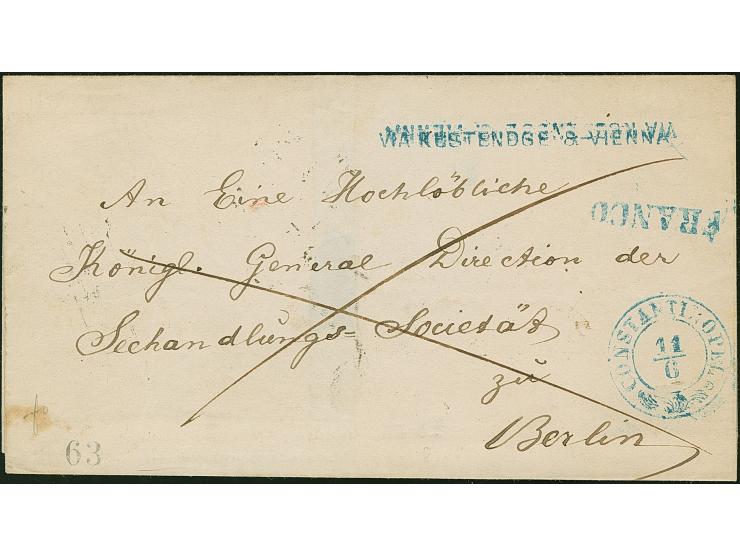 VIA KUSTENDGE & VIENNA
VIA KUSTENDGE & VIENNA
An Eine Hochlöbliche
FRANCO
Königl. General Direction der
Seehandlungs= Societät
CONSTANTINOPEL
11
6
zu
Berlin
63